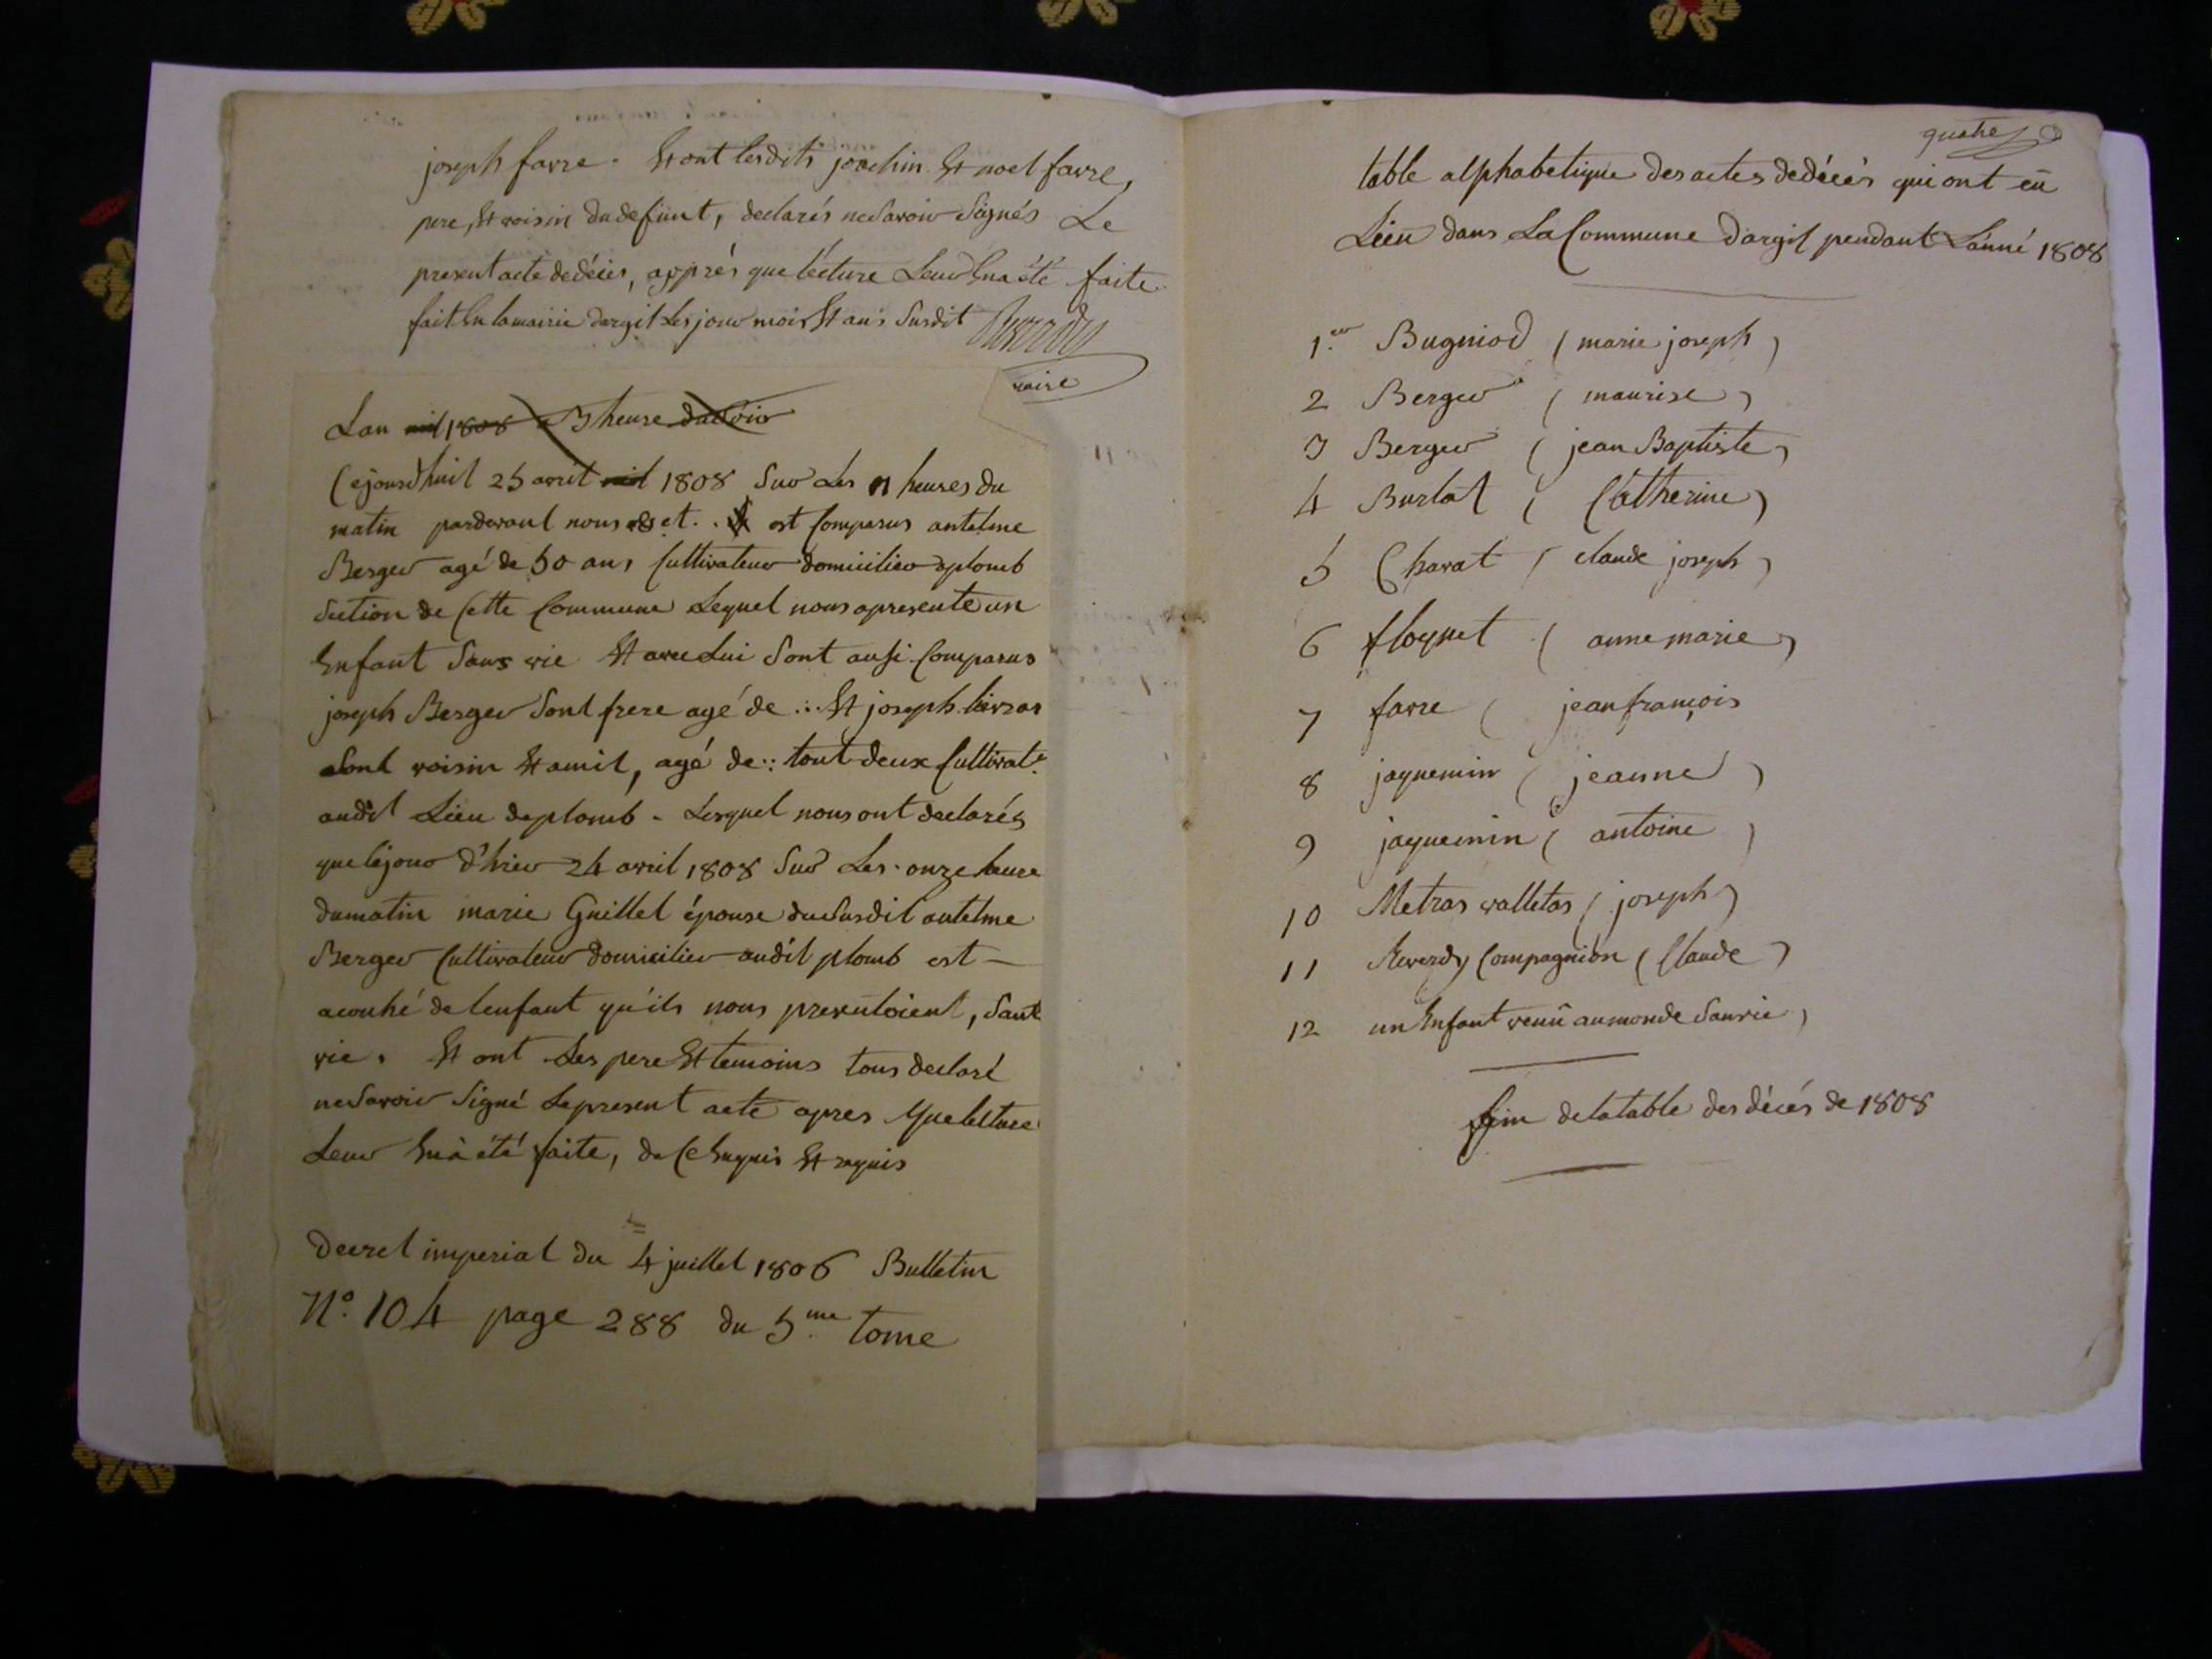 joseph favre. Et ont lesdits joachin Et noel favre,
pere, Et voisin du defunt, declarés ne Savoir Signés Le
present acte de décès, apprés que lécture Leur En a été faite
fait En la mairie dargit Les jour mois Et ans Susdit
maire
Lan mil 1808 a 3 heure du Soir
Cejourdhuit 25 avril mil 1808 Sur Les 11 heures du
matin pardevant nous et. est Comparus antelme
Berger agé de 50 ans Cultivateur domicilier aplomb
Section de Cette Commune Lequel nous apresente un
Enfant Sans vie Et avec Lui Sont aussi Comparus
joseph Berger Sont frere agé de ... Et joseph
Sont voisin Et amit, agé de :: tout deux Cultivatr.
audit Lieu de plomb - Lesquel nous ont declarés
que léjour d'hier 24 avril 1808 Sur Les onze heure
du matin marie Guillet épouse du Susdit antelme
Berger Cultivateur domicilier audit plomb est -
acouhé de lenfant qu'ils nous presentoient, Sant
vie. Et ont Les pere Et temoins tous declaré
ne Savoir Signé Le present acte apres que lecture
Leur En à été faite, de Ce Enquis Et requis
Decret imperial du 4 juillet 1806 Bulletin
N.º 104 page 288 du 5.me tome
quatre
table alphabetique des actes de décés qui ont eû
Lieu dans La Commune dargit pendant Lánné 1808
1.er Bugniod ( marie joseph )
2 Berger ( maurise )
3 Berger ( jean Baptiste )
4 Burlat ( Catherine )
5 Charat ( claude joseph )
6 floquet ( anne marie )
7 favre ( jean françois
8 jaquemin ( jeanne )
9 jaquemin ( antoine )
10 Metras valletas ( joseph )
11 Reverdy Compagnion ( Claude )
12 un Enfant venû au monde San vie )
fin de la table des décés de 1808